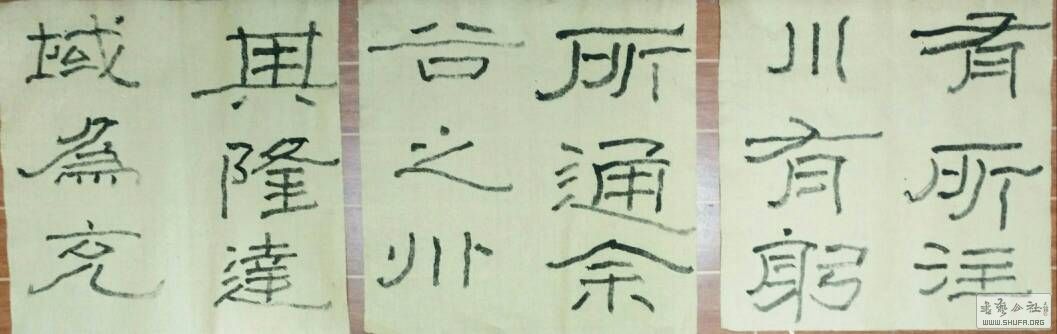 有所注
川有躬
所通余
谷之州
其隆達
域為充
书艺公社
WWW.SHUFA.ORG